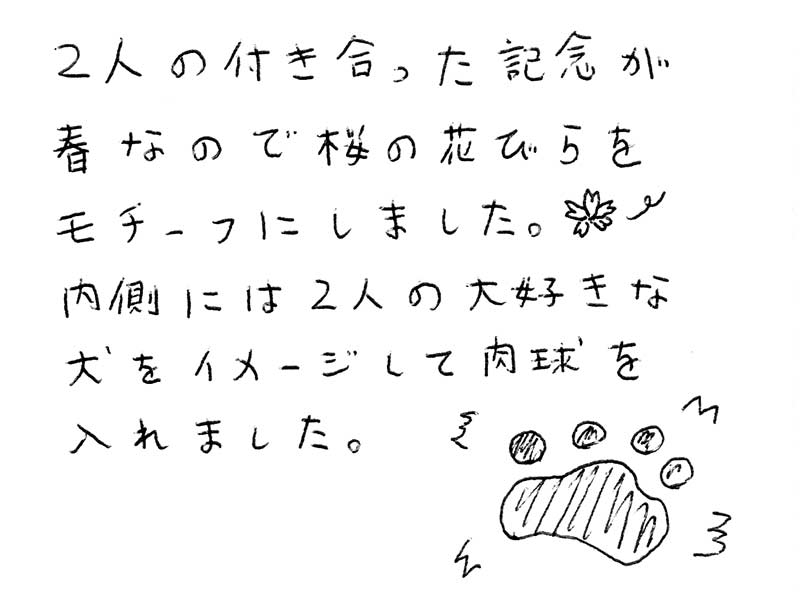 2人の付き合った記念が
春なので桜の花びらを
モチーフにしました。
内側には2人の大好きな
犬をイメージして肉球を
入れました。